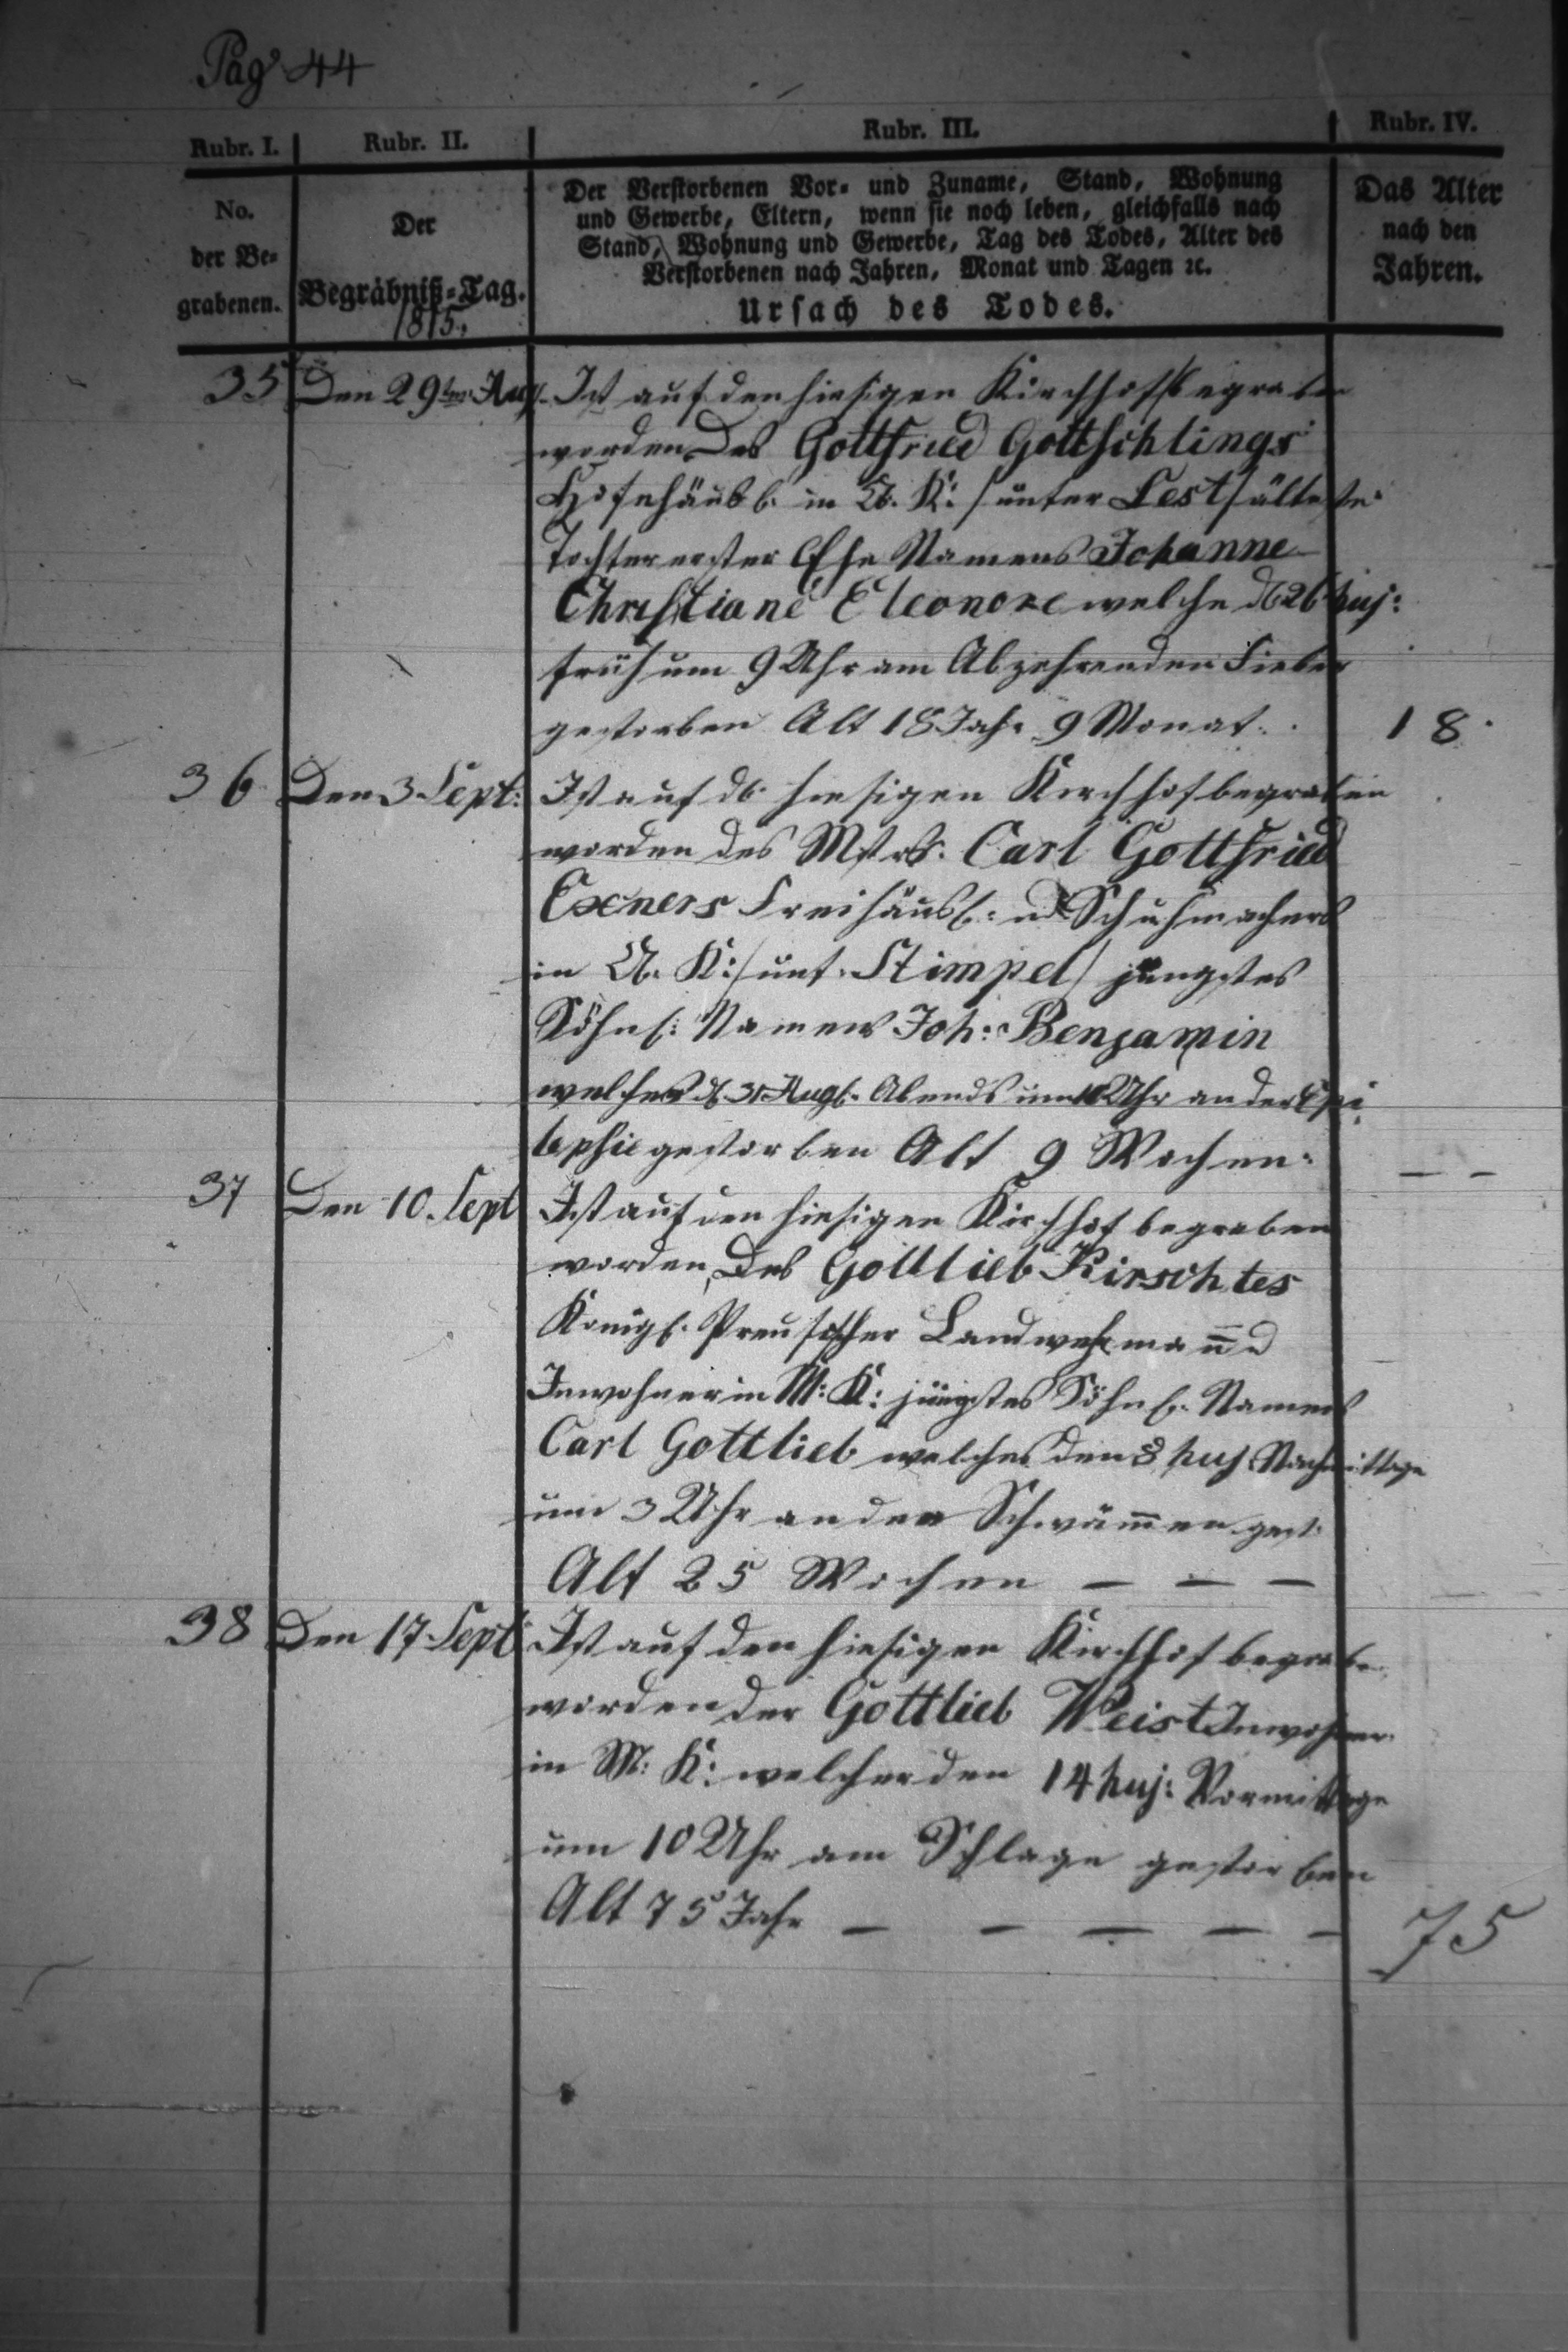 Pag 44
Rubr. I. Rubr. II. Rubr. III. Rubr. IV.
No.
der Be-
grabenen.
Der
Begräbniß-Tag.
1815.
Der Verstorbenen Vor- und Zuname, Stand, Wohnung
und Gewerbe, Eltern, wenn sie noch leben, gleichfalls nach
Stand, Wohnung und Gewerbe, Tag des Todes, Alter des
Verstorbenen nach Jahren, Monat und Tagen ꝛc.
Ursach des Todes.
Das Alter
nach den
Jahren.
35 Den 29ten Aug. Ist auf den hiesigen Kirchhof begraben
worden Des Gottfried Gottschlings
Hofehäusl. in U. K: / unter Lest / älteste
Tochter erster Ehe Namens Johanne
Christiane Eleonore welche d 26 huj:
früh um 9 Uhr am Abzehrenden Fieber
gestorben Alt 18 Jahr 9 Monat. 18.
36 Den 3 Sept: Ist auf d hiesigen Kirchhof begraben
worden des Mstrs. Carl Gottfried
Exners Freihäusl: u Schuhmachers
in U. K: / unt. Stimpel / jüngstes
Söhnl: Namens Joh: Benjamin
welches d 31 Augl. Abends um Uhr an der Epi
lepsie gestorben Alt 9 Wochen. — —
37 Den 10. Sept Ist auf den hiesigen Kirchhof begraben
worden, Des Gottlieb Kirschtes
Königl. Preusischer Landwehrman̄ u
Inwohner in M: K: jüngstes Söhnl. Namens
Carl Gottlieb welches den 8 huj Nachmittage
um 3 Uhr an den Schwäm̄en gest:
Alt 25 Wochen — — —
38 Den 17 Sept Ist auf den hiesigen Kirchhof begraben
worden der Gottlieb Weist Inwohner
in M: K: welcher den 14 huj: Vormittage
um 10 Uhr am Schlage gestorben
Alt 75 Jahr — — — — — 75